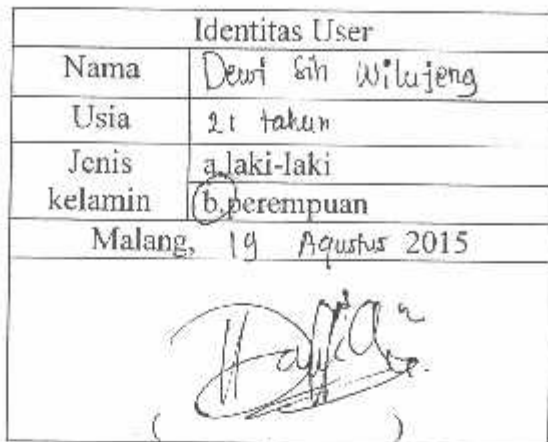 Identitas User
Nama Dewi Sih Wilujeng
Usia 21 tahun
Jenis kelamin a.laki-laki
b.perempuan
Malang, 19 Agustus 2015
( )